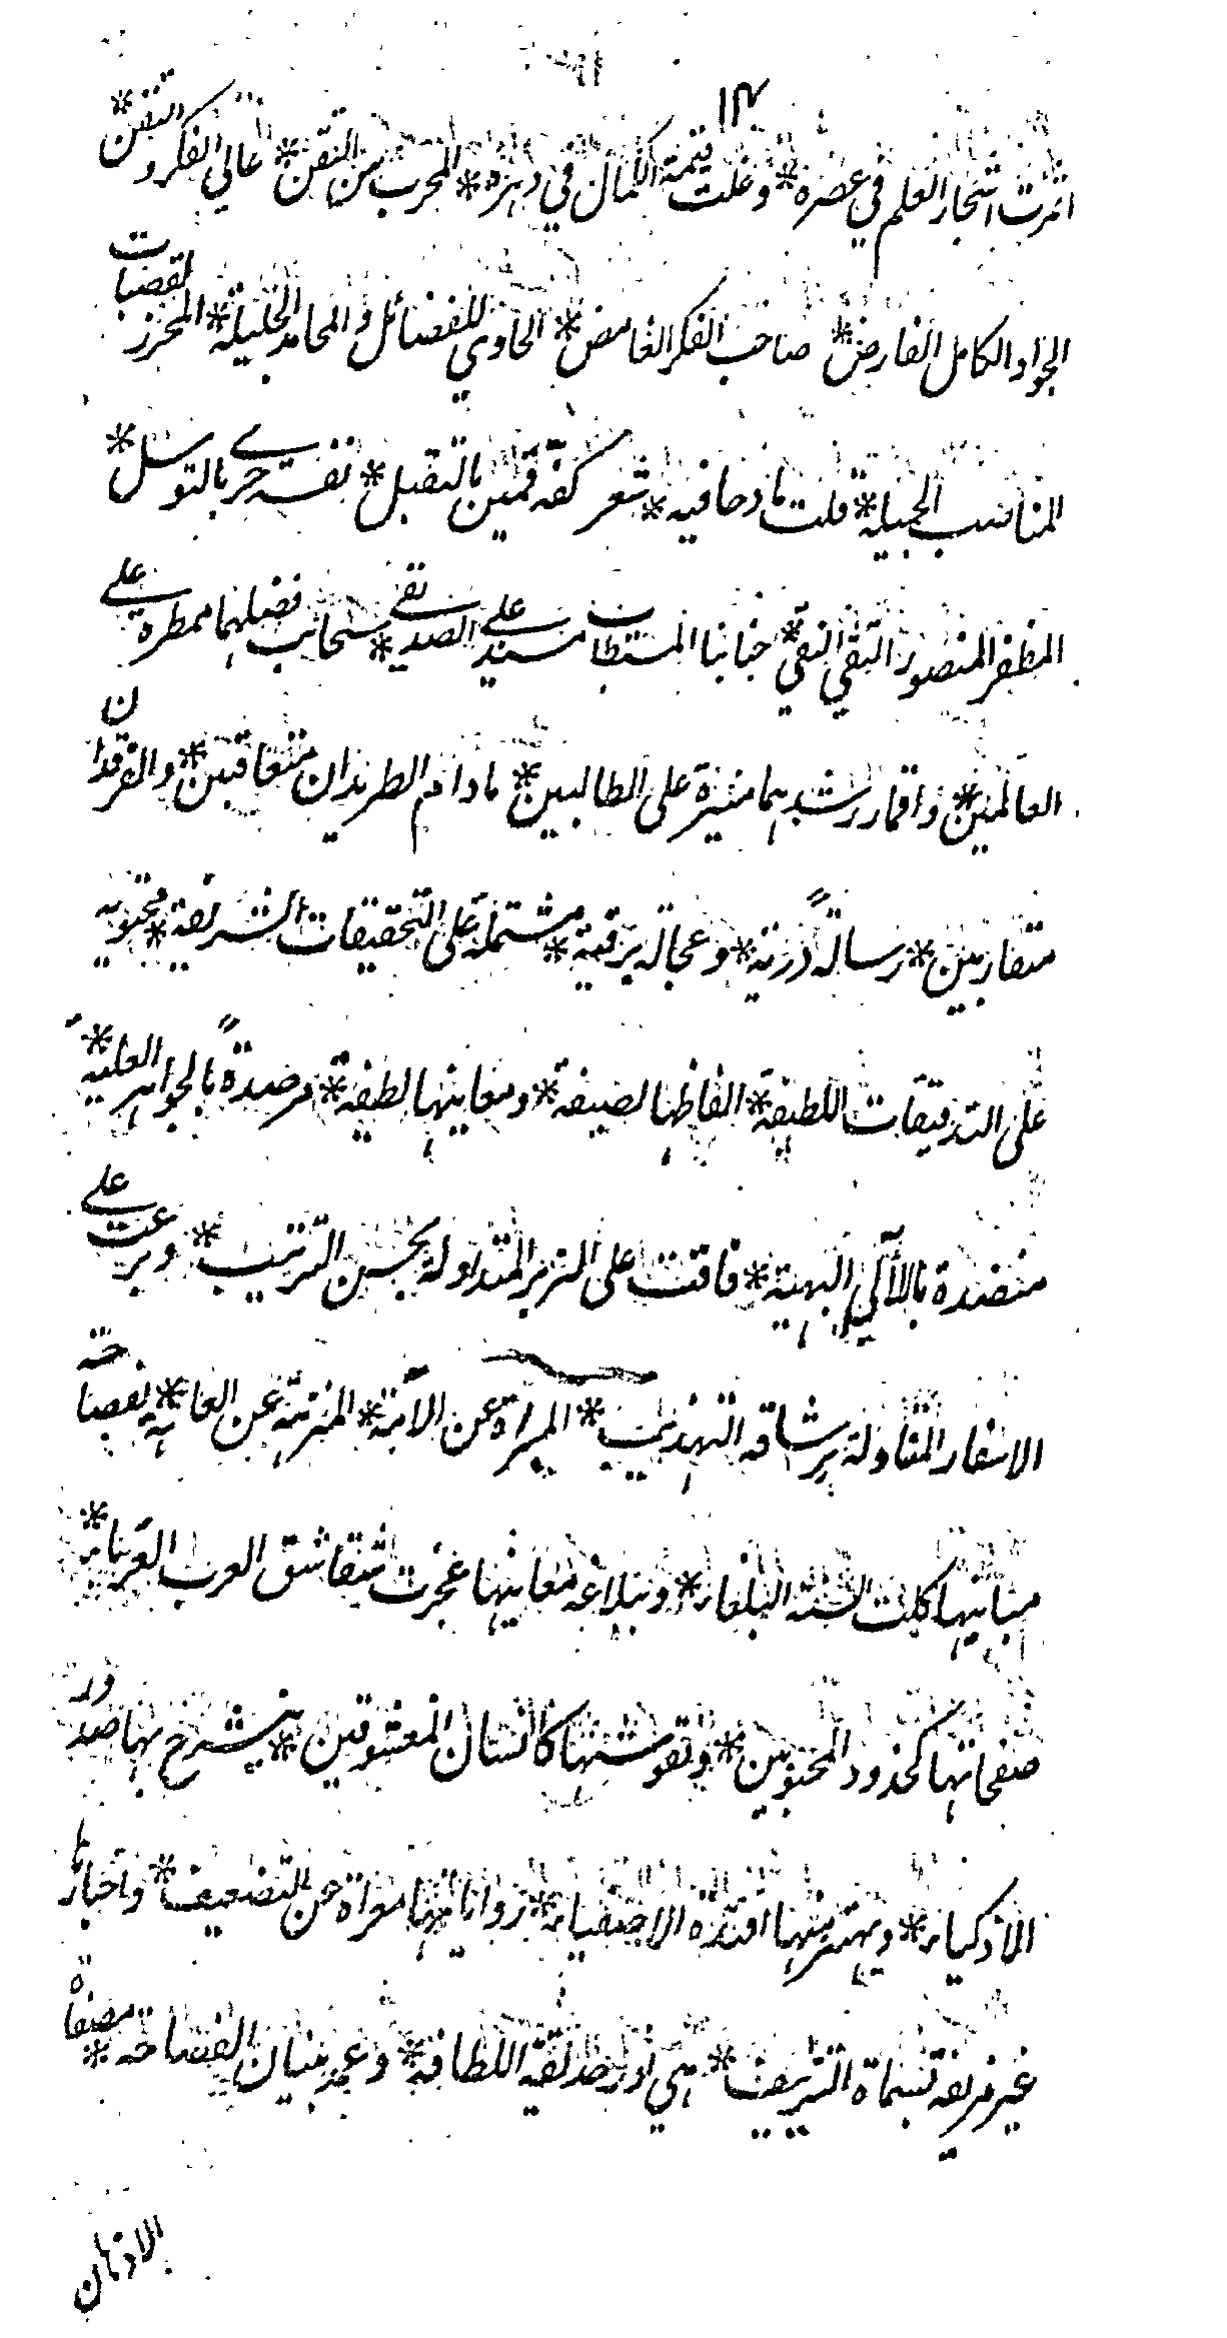 ١٣
اثمرت اشجار العلم في عصره * وغلت قيمة الكمال في دهره * المجرب من التقن * عالي الفكر و التفنن *
الجواد الكامل الفارض * صاحب الفكر الغامض * الحاوي للفضائل و المحامد الجليلة * المحرز لقصبات
المناصب الجميلة * قلت مادحا فيه * شعر كفه قمين بالتقبل * نفسه حري بالتوسل *
المظفر المنصور التقي النقي * جنابنا المستطاب سيد علي الصديقي * سحائب فضلهما ممطرة علي
العالمين * واقمار رشدهما منيرة على الطالبين * مادام الطريدان متعاقبين * والفرقدان
متقاربين * رسالةً درية * وعجالة برقية * مشتملة على التحقيقات الشريفة * محتوية
على التدقيقات اللطيفة * الفاظها لصيفة * ومعانيها لطيفة * مرصدةً بالجواهر العلية *
منضدة باللآلي البهية * فاقت على الزبر المتداولة بحسن الترتيب * وبرعت علي
الاسفار المتناولة برشاقة التهذيب * المبراة عن الآمة * المنزهة عن العاهة * بفصاحة
مبانيها كلت السنة البلغاء * وببلاغة معانيها عجزت شقاشق العرب العرباء *
صفحاتها كخدود المحبوبين * ونقوشها كانسان المعشوقين * ينشرح بها صدور
الاذكياء * ويهتز منها افئدة الاصفياء * رواياتها معراة عن التضعيف * واخبارها
غير مزيفة بسماة التزييف * هي نور حديقة اللطافة * وعمد بنيان الفصاحة * مصفاة
الاذهان